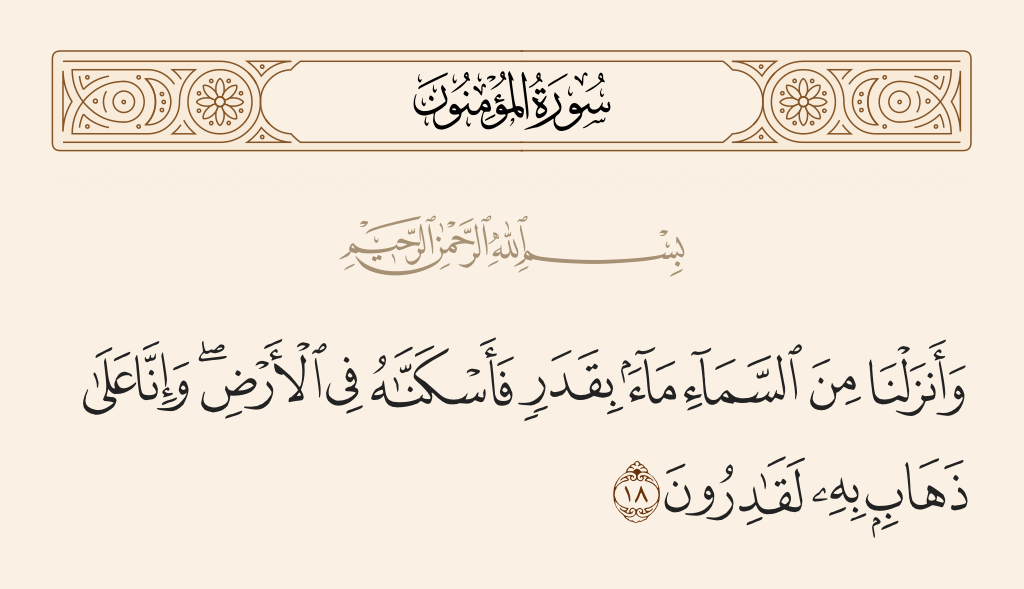 سُورَةُ المُؤْمِنُونَ
بِسْمِ ٱللَّهِ ٱلرَّحْمَٰنِ ٱلرَّحِيمِ
وَأَنزَلْنَا مِنَ ٱلسَّمَآءِ مَآءًۢ بِقَدَرٍ فَأَسْكَنَّٰهُ فِى ٱلْأَرْضِ ۖ وَإِنَّا عَلَىٰ
ذَهَابٍۭ بِهِۦ لَقَٰدِرُونَ ١٨